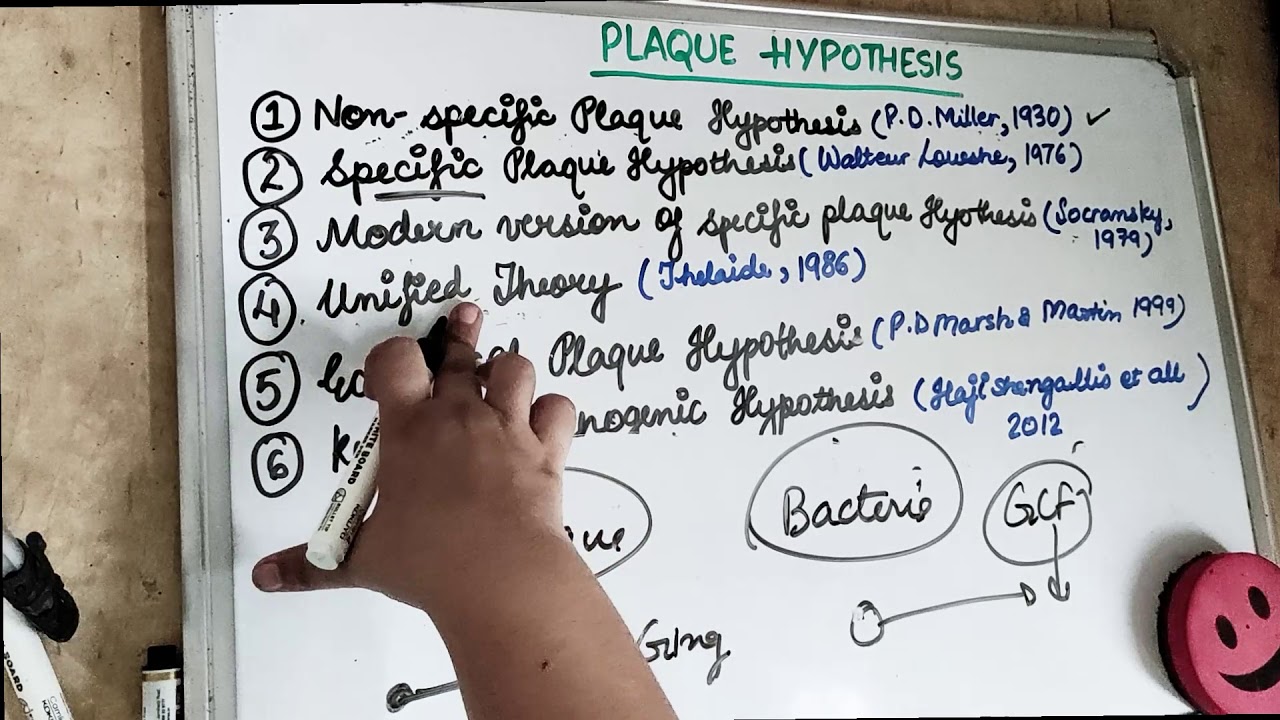 PLAQUE HYPOTHESIS
① Non-specific Plaque Hypothesis (P.D. Miller, 1930) ✓
② Specific Plaque Hypothesis (Walteur Loueshe, 1976)
③ Modern version of specific plaque Hyothesis (Socramsky, 1979)
④ Unified Theory (Thelaide, 1986)
⑤ Plaque Hypothesis (P.D Marsh & Martin 1999)
⑥ Hypothesis (Hajishengallis et all 2012
Bacteria GCF
Ging